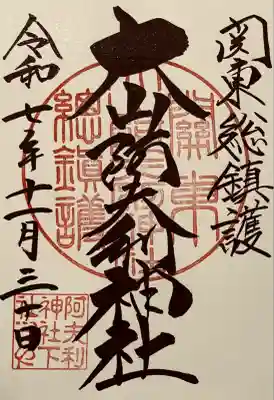 関東総鎮護
大山阿夫利神社
令和七年十一月三十日
關東
總鎮護
阿夫利
神社下